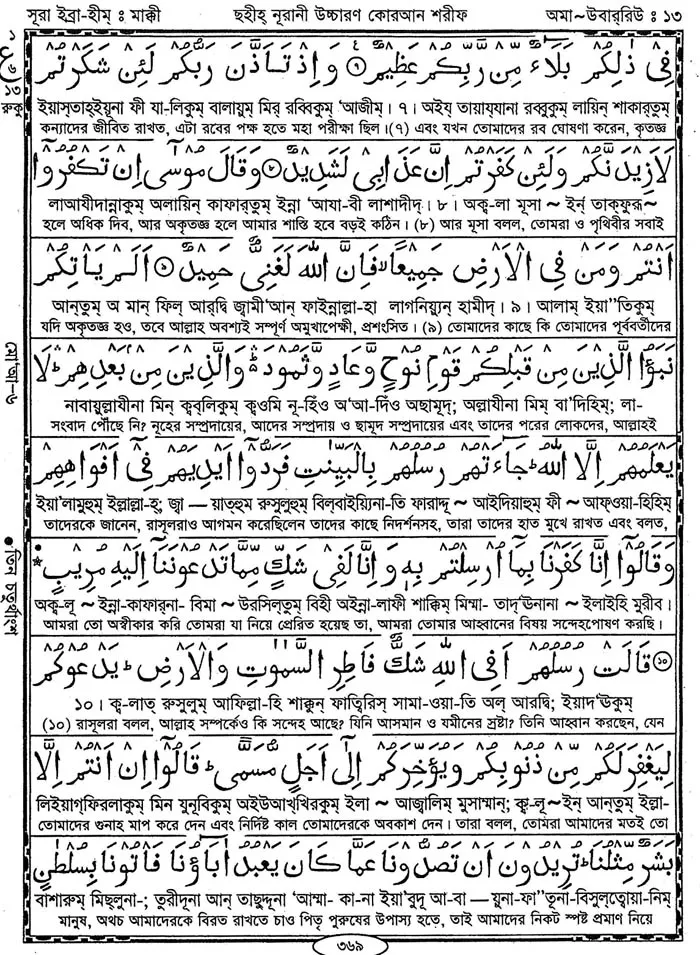 সূরা ইব্রা-হীম্ : মাক্কী ছহীহ্ নূরানী উচ্চারণ কোরআন শরীফ অমা~উবার্‌রিউ : ১৩
فِىْ ذٰلِكُمْ بَلَآءٌ مِّنْ رَّبِّكُمْ عَظِيْمٌ ۝٦ وَاِذْ تَاَذَّنَ رَبُّكُمْ لَئِنْ شَكَرْتُمْ
ইয়াস্‌তাহ্ইয়ূনা ফী যা-লিকুম্ বালায়ুম্ মির্ রব্বিকুম্ ‘আজীম্। ৭। অইয্ তায়ায্‌যানা রব্বুকুম্ লায়িন্ শাকার্‌তুম্
কন্যাদের জীবিত রাখত, এটা রবের পক্ষ হতে মহা পরীক্ষা ছিল। (৭) এবং যখন তোমাদের রব ঘোষণা করেন, কৃতজ্ঞ
لَاَزِيْدَنَّكُمْ وَلَئِنْ كَفَرْتُمْ اِنَّ عَذَابِىْ لَشَدِيْدٌ ۝٧ وَقَالَ مُوْسٰٓى اِنْ تَكْفُرُوْٓا
লাআযীদান্নাকুম্ অলায়িন্ কাফার্‌তুম্ ইন্না ‘আযা-বী লাশাদীদ্। ৮। অক্ব-লা মূসা ~ ইন্ তাক্‌ফুরূ~
হলে অধিক দিব, আর অকৃতজ্ঞ হলে আমার শাস্তি হবে বড়ই কঠিন। (৮) আর মূসা বলল, তোমরা ও পৃথিবীর সবাই
اَنْتُمْ وَمَنْ فِى الْاَرْضِ جَمِيْعًا ۙ فَاِنَّ اللّٰهَ لَغَنِىٌّ حَمِيْدٌ ۝٨ اَلَمْ يَاْتِكُمْ
আন্‌তুম্ অ মান্ ফিল্ আর্‌দ্বি জ্বামী‘আন্ ফাইন্নাল্লা-হা লাগনিয়্যুন্ হামীদ্। ৯। আলাম্ ইয়া”তিকুম্
যদি অকৃতজ্ঞ হও, তবে আল্লাহ অবশ্যই সম্পূর্ণ অমুখাপেক্ষী, প্রশংসিত। (৯) তোমাদের কাছে কি তোমাদের পূর্ববর্তীদের
نَبَؤُا الَّذِيْنَ مِنْ قَبْلِكُمْ قَوْمِ نُوْحٍ وَّعَادٍ وَّثَمُوْدَ ۛ وَالَّذِيْنَ مِنْۢ بَعْدِهِمْ ۛ لَا
নাবায়ুল্লাযীনা মিন্ ক্বব্‌লিকুম্ ক্বওমি নূ-হিঁও অ‘আ-দিঁও অছামূদ্; অল্লাযীনা মিম্ বা‘দিহিম্; লা-
সংবাদ পৌঁছে নি? নূহের সম্প্রদায়ের, আদের সম্প্রদায় ও ছামূদ সম্প্রদায়ের এবং তাদের পরের লোকদের, আল্লাহই
يَعْلَمُهُمْ اِلَّا اللّٰهُ ؕ جَآءَتْهُمْ رُسُلُهُمْ بِالْبَيِّنٰتِ فَرَدُّوْٓا اَيْدِيَهُمْ فِىْٓ اَفْوَاهِهِمْ
ইয়া‘লামুহুম্ ইল্লাল্লা-হ্; জ্বা — য়াত্‌হুম রুসুলুহুম্ বিল্‌বাইয়্যিনা-তি ফারাদ্দূ ~ আইদিয়াহুম্ ফী ~ আফ্‌ওয়া-হিহিম্
তাদেরকে জানেন, রাসূলরাও আগমন করেছিলেন তাদের কাছে নিদর্শনসহ, তারা তাদের হাত মুখে রাখত এবং বলত,
وَقَالُوْٓا اِنَّا كَفَرْنَا بِمَآ اُرْسِلْتُمْ بِهٖ وَاِنَّا لَفِىْ شَكٍّ مِّمَّا تَدْعُوْنَنَآ اِلَيْهِ مُرِيْبٍ
অক্ব-লূ ~ ইন্না-কাফার্‌না- বিমা ~ উরসিল্‌তুম্ বিহী অইন্না-লাফী শাক্কিম্ মিম্মা- তাদ্‘ঊনানা ~ ইলাইহি মুরীব্।
আমরা তো অস্বীকার করি তোমরা যা নিয়ে প্রেরিত হয়েছ তা, আমরা তোমার আহ্বানের বিষয় সন্দেহপোষণ করছি।
۝١٠ قَالَتْ رُسُلُهُمْ اَفِى اللّٰهِ شَكٌّ فَاطِرِ السَّمٰوٰتِ وَالْاَرْضِ ؕ يَدْعُوْكُمْ
১০। ক্ব-লাত্ রুসুলুম্ আফিল্লা-হি শাক্কুন্ ফাত্বিরিস্ সামা-ওয়া-তি অল্ আরদ্বি; ইয়াদ‘ঊকুম্
(১০) রাসূলরা বলল, আল্লাহ সম্পর্কেও কি সন্দেহ আছে? যিনি আসমান ও যমীনের স্রষ্টা? তিনি আহ্বান করছেন, যেন
لِيَغْفِرَ لَكُمْ مِّنْ ذُنُوْبِكُمْ وَيُؤَخِّرَكُمْ اِلٰٓى اَجَلٍ مُّسَمًّى ؕ قَالُوْٓا اِنْ اَنْتُمْ اِلَّا
লিইয়াগ্‌ফিরলাকুম্ মিন যুনূবিকুম্ অইউআখ্‌খিরকুম্ ইলা ~ আজ্বালিম্ মুসাম্মান্; ক্ব-লূ~ইন্ আন্‌তুম্ ইল্লা-
তোমাদের গুনাহ মাপ করে দেন এবং নির্দিষ্ট কাল তোমাদেরকে অবকাশ দেন। তারা বলল, তোমরা আমাদের মতই তো
بَشَرٌ مِّثْلُنَا ؕ تُرِيْدُوْنَ اَنْ تَصُدُّوْنَا عَمَّا كَانَ يَعْبُدُ اٰبَآؤُنَا فَاْتُوْنَا بِسُلْطٰنٍ
বাশারুম্ মিছ্‌লুনা-; তুরীদূনা আন্ তাছুদ্দূনা ‘আম্মা- কা-না ইয়া‘বুদূ আ-বা — য়ুনা-ফা”তূনা-বিসুল্‌ত্বোয়া-নিম্
মানুষ, অথচ আমাদেরকে বিরত রাখতে চাও পিতৃ পুরুষের উপাস্য হতে, তাই আমাদের নিকট স্পষ্ট প্রমাণ নিয়ে
৩৬৯
১
ع
১৩
রুকু
মো‘আ-৬
তিন চতুর্থাংশ